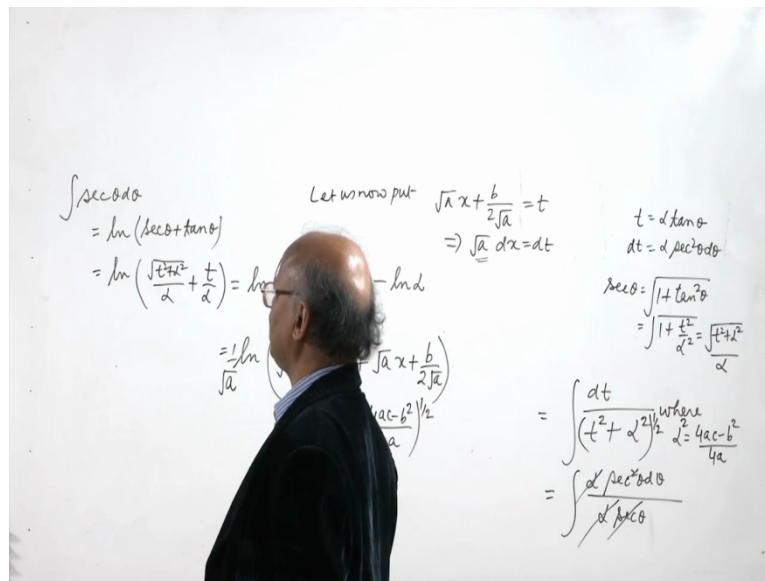 ∫ sec θ dθ
= ln (sec θ + tan θ)
= ln (√(t²+α²)/α + t/α) = ln − ln α
= 1/√a ln ( + √a x + b/(2√a))
4ac−b²/a)^(1/2)
Let us now put √a x + b/(2√a) = t
⇒ √a dx = dt
t = α tan θ
dt = α sec²θ dθ
sec θ = √(1 + tan²θ)
= √(1 + t²/α²) = √(t²+α²)/α
= ∫ dt/(t² + α²)^(1/2) where α² = (4ac−b²)/4a
= ∫ α sec²θ dθ/(α sec θ)